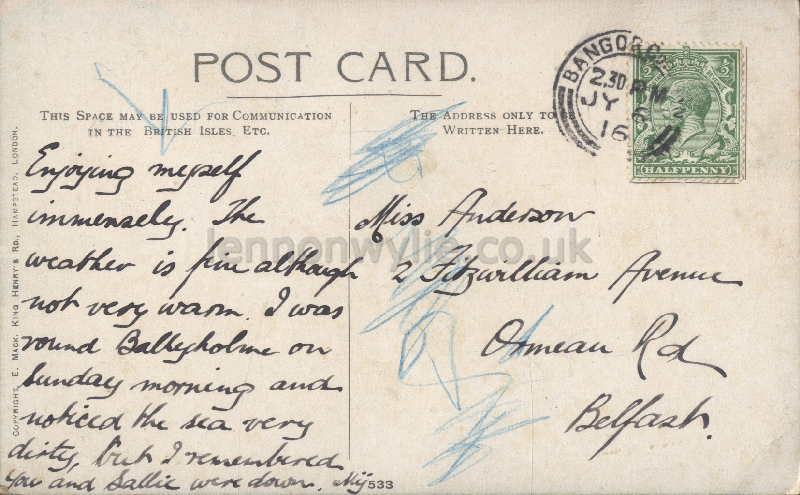 POST CARD.
THIS SPACE MAY BE USED FOR COMMUNICATION
IN THE BRITISH ISLES, ETC.
THE ADDRESS ONLY TO BE
WRITTEN HERE.
BANGOR
2.30 PM
JY 6
16
HALFPENNY
Enjoying myself
immensely. The
weather is fine although
not very warm. I was
round Ballyholme on
Sunday morning and
noticed the sea very
dirty, but I remembered
you and Sallie were down.
Miss Anderson
2 Fitzwilliam Avenue
Ormeau Rd
Belfast.
533
COPYRIGHT, E. MACK, KING HENRY'S RD., HAMPSTEAD, LONDON.
lennonwylie.co.uk